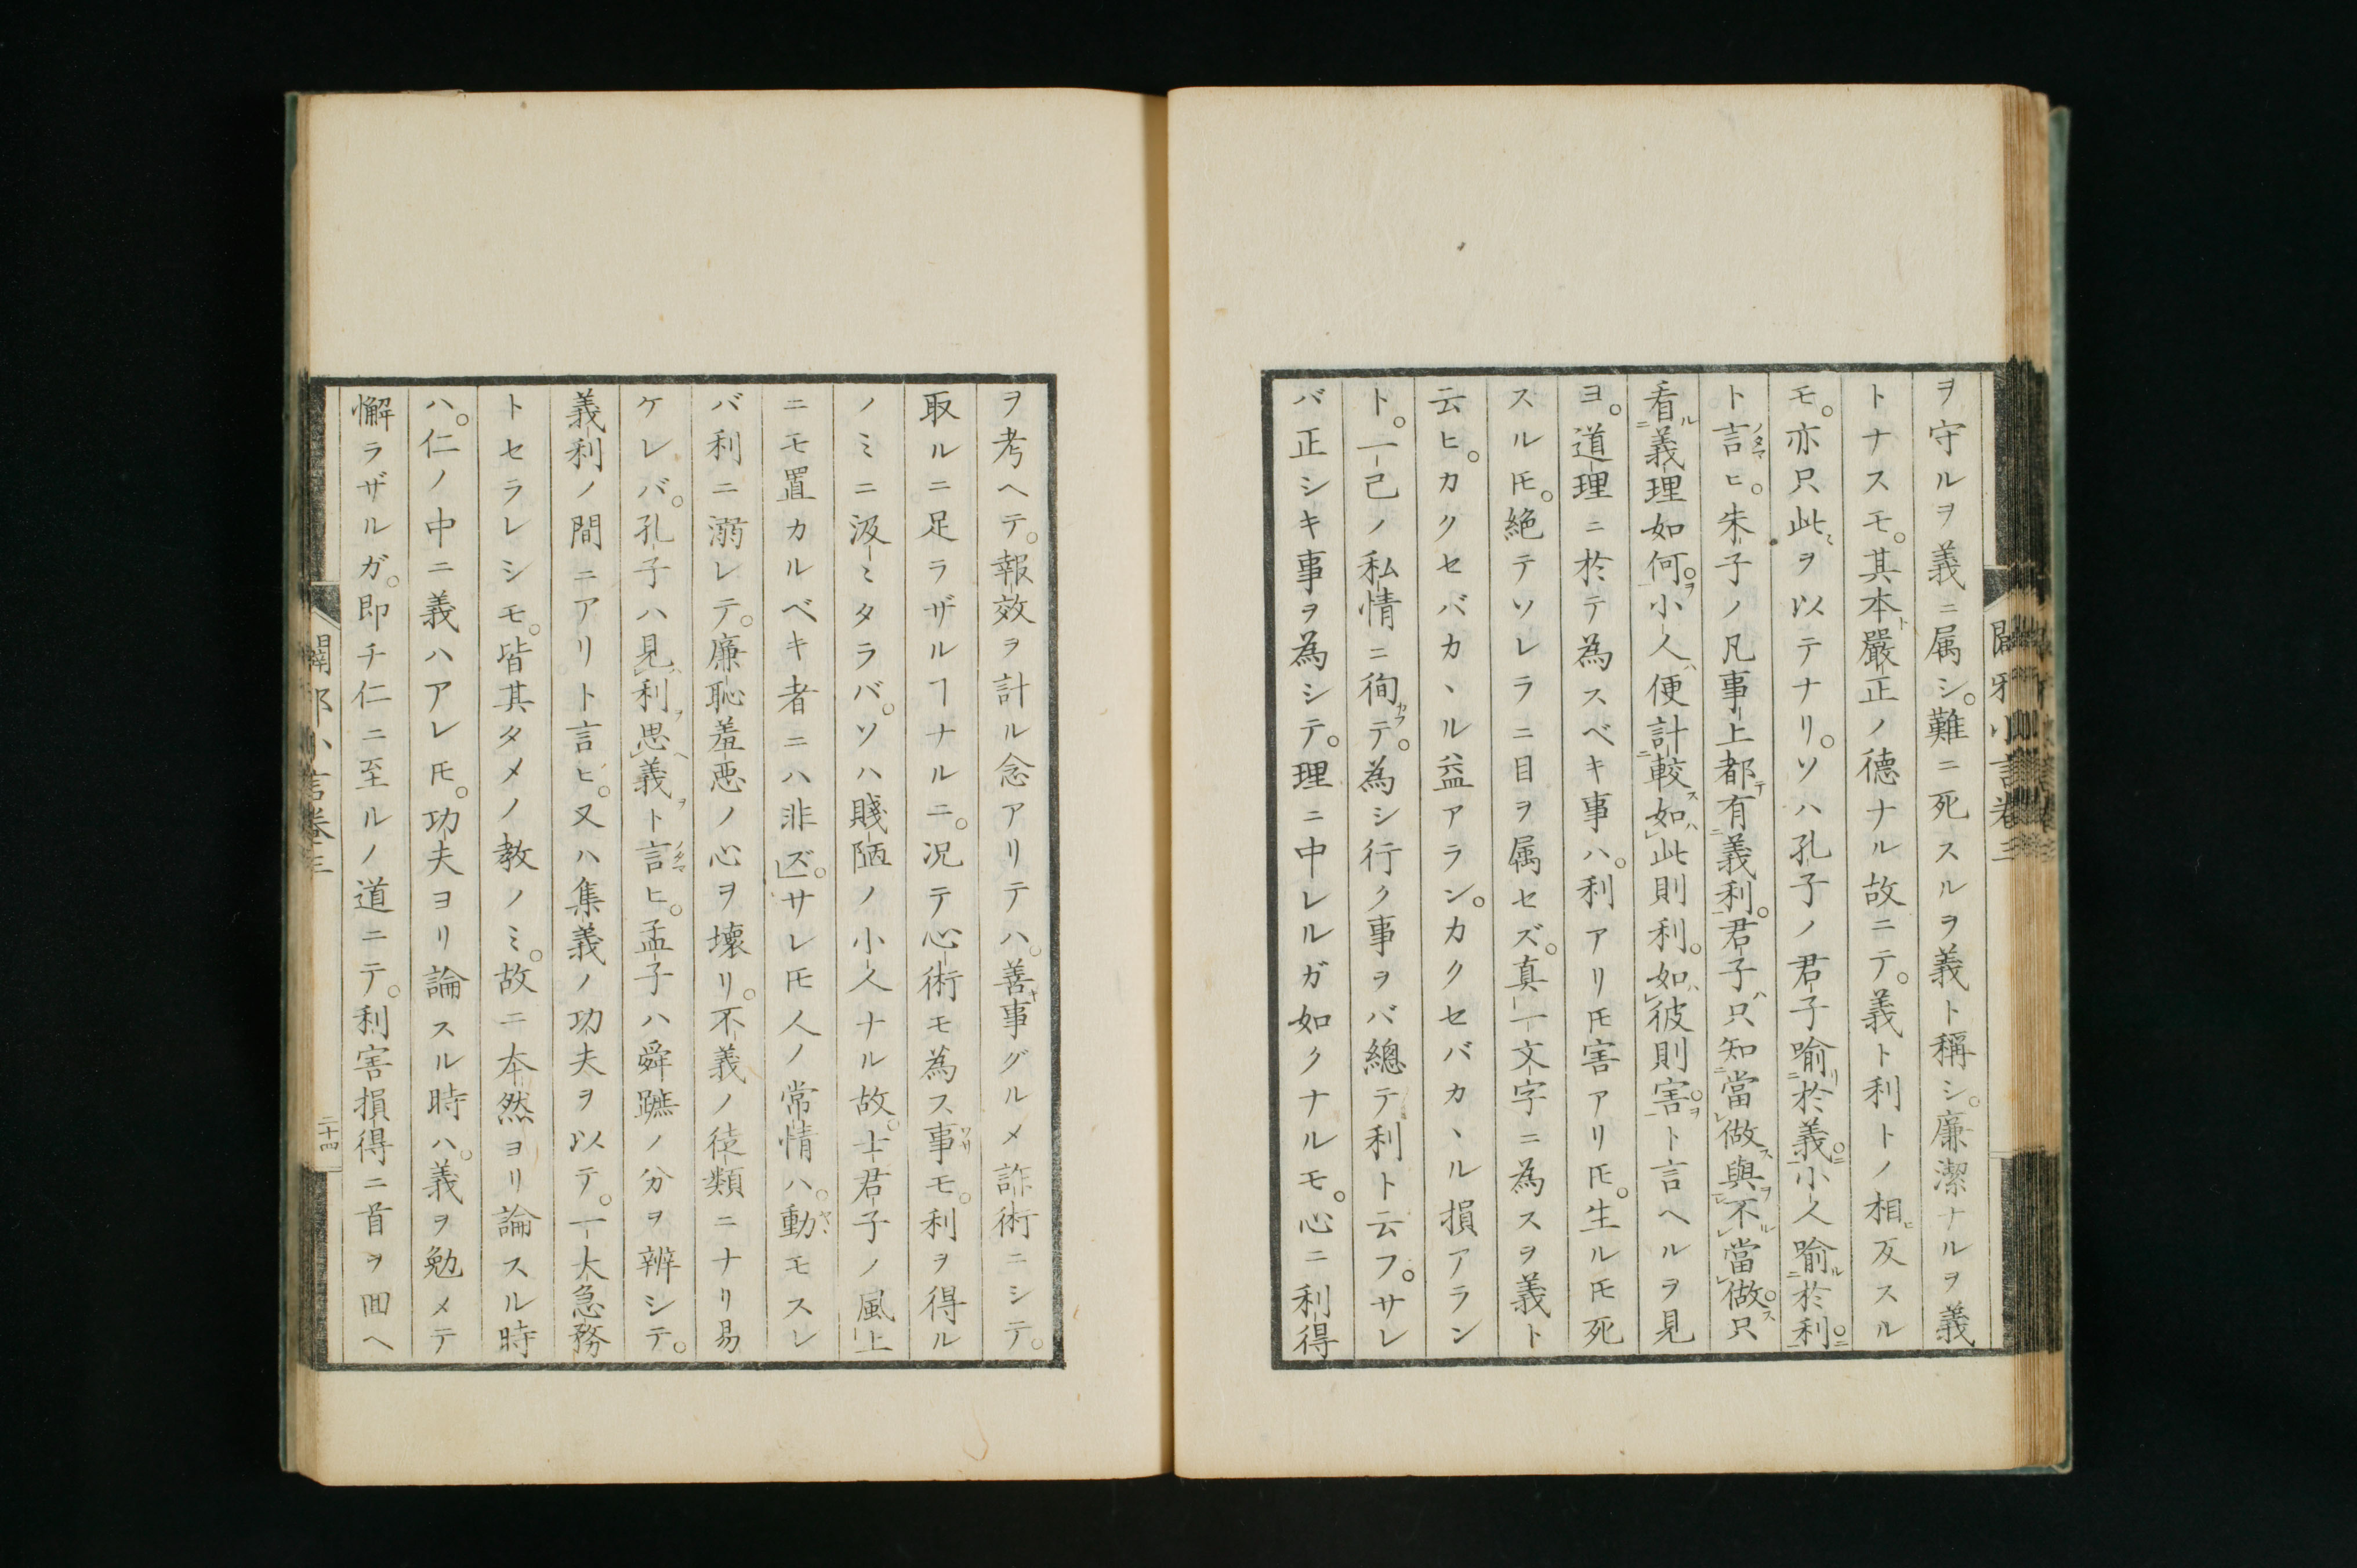 ヲ守ルヲ義ニ属シ。難ニ死スルヲ義ト稱シ。廉潔ナルヲ義
トナスモ。其本ト嚴正ノ德ナル故ニテ。義ト利トノ相ヒ反スル
モ。亦只此ミヲ以テナリ。ソハ孔子ノ君子喻リ二於義一ニ。小人喻ル二於利一ニ。
ト言ノタマヒ。朱子ノ凡事上都テ有二義利一。君子ハ只知二當レ做スト與ヲ一レ不ルレ當レ做ス。只
看ル二義理如何一ヲ。小人ハ便計二較ス如ハレ此則利。如ハレ彼則害一ヲ。ト言ヘルヲ見
ヨ。道理ニ於テ為スベキ事ハ。利アリ𪜈害アリ𪜈。生ル𪜈死
スル𪜈。絶テソレラニ目ヲ属セズ。真一文字ニ為スヲ義ト
云ヒ。カクセバカヽル益アラン。カクセバカヽル損アラン
ト。一己ノ私情ニ徇カフテ。為シ行ク事ヲバ總テ利ト云フ。サレ
バ正シキ事ヲ為シテ。理ニ中レルガ如クナルモ。心ニ利得
闢邪小言卷三
ヲ考ヘテ。報效ヲ計ル念アリテハ。善キ事グルメ詐術ニシテ。
取ルニ足ラザルヿナルニ。况テ心術モ為ス事ワザモ。利ヲ得ル
ノミニ汲ミタラバ。ソハ賤陋ノ小人ナル故。士君子ノ風上
ニモ置カルベキ者ニハ非レズ。サレ𪜈人ノ常情ハ。動ヤヽモスレ
バ利ニ溺レテ。廉恥羞悪ノ心ヲ壞リ。不義ノ徒類ニナリ易
ケレバ。孔子ハ見ハレ利ヲ思ヘレ義ヲト言ノタマヒ。孟子ハ舜蹠ノ分ヲ辨シテ。
義利ノ間ニアリト言ヒ。又ハ集義ノ功夫ヲ以テ。一大急務
トセラレシモ。皆其タメノ教ノミ。故ニ本然ヨリ論スル時
ハ。仁ノ中ニ義ハアレ𪜈。功夫ヨリ論スル時ハ。義ヲ勉メテ
懈ラザルガ。即チ仁ニ至ルノ道ニテ。利害損得ニ首ヲ囬ヘ
闢邪小言卷三
二十四